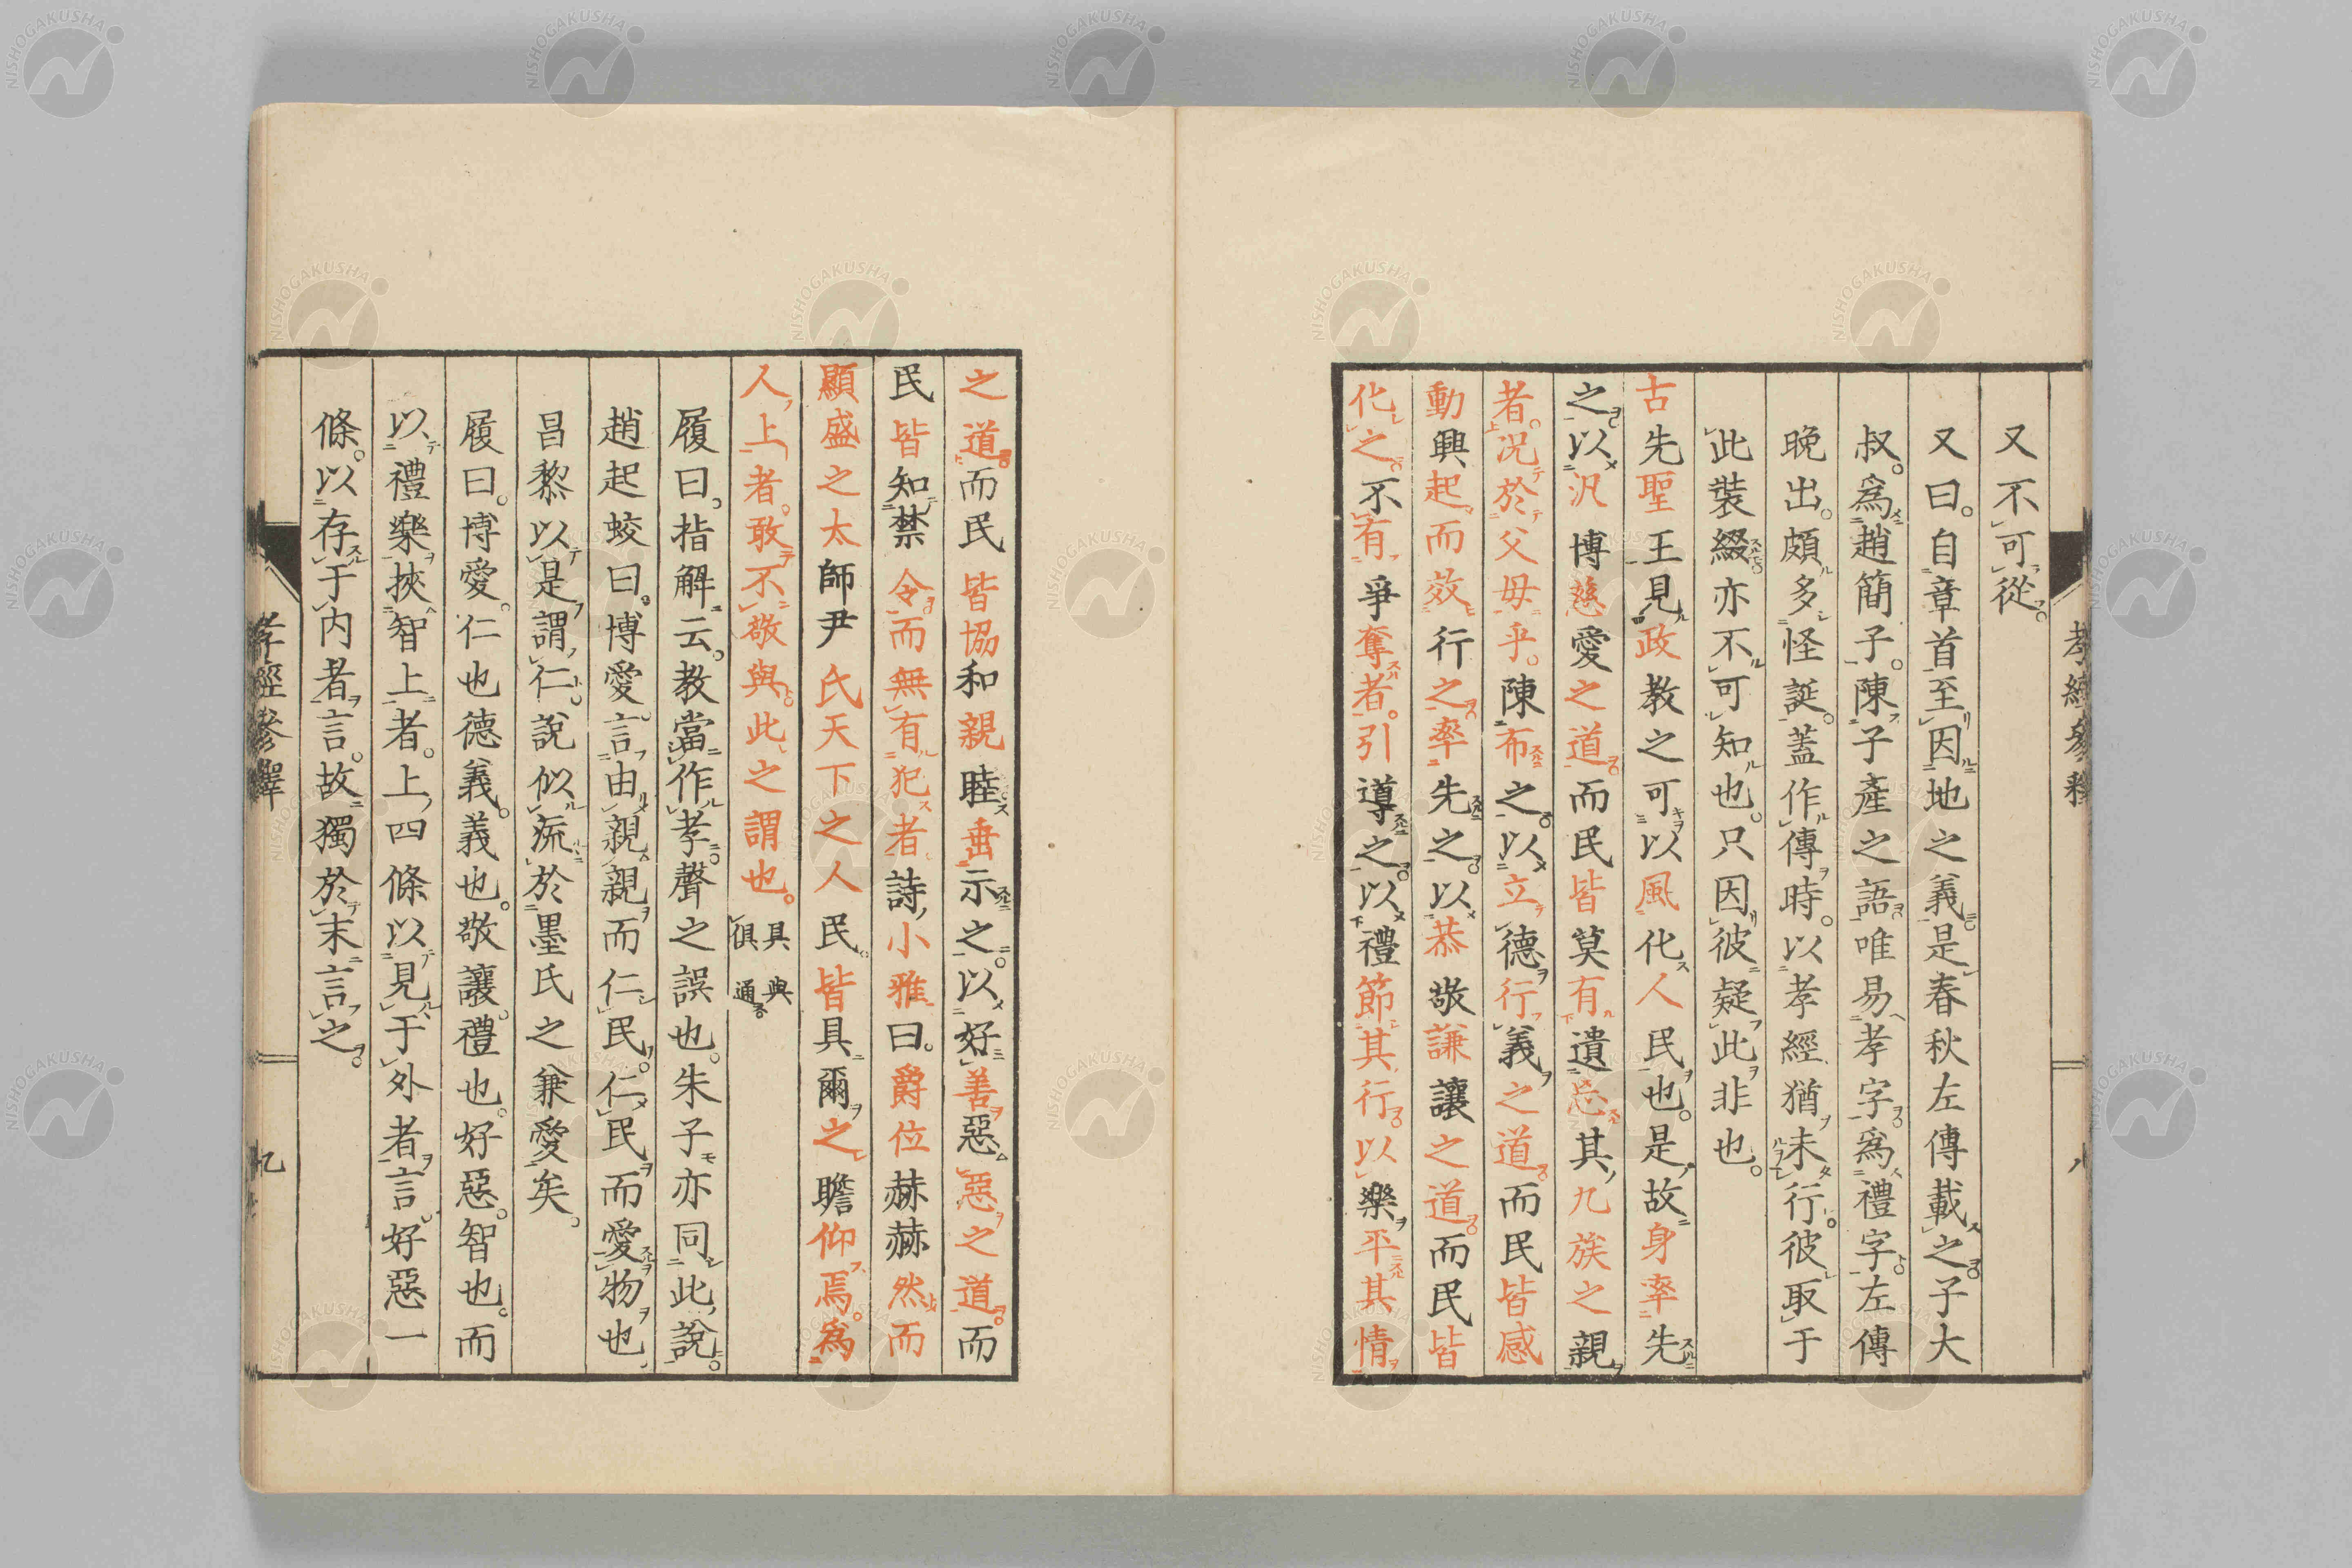 孝經參釋
八
又不可從。
又曰。自章首至因地之義。是春秋左傳載之子大
叔。爲趙簡子。陳子產之語唯易孝字爲禮字。左傳
晚出。頗多怪誕。蓋作傳時。以孝經猶未行。彼取于
此裝綴亦不可知也。只因彼疑此非也。
古先聖王見政教之可以風化人民也。是故身率先
之。以汎博慈愛之道。而民皆莫有遺忘其九族之親
者。況於父毋乎。陳布之。以立德行義之道。而民皆感
動興起。而效行之。率先之。以恭敬謙讓之道。而民皆
化之。不有爭奪者。引導之。以禮節其行。以樂平其情
之道。而民皆協和親睦。垂示之。以好善惡惡之道。而
民皆知禁令。而無有犯者。詩小雅曰。爵位赫赫然而
顯盛之太師尹氏天下之人民。皆具爾之瞻仰焉。爲
人上者。敢不敬與。此之謂也。具與俱通。
履曰。指解云。教當作孝。聲之誤也。朱子亦同此說。
趙起蛟曰。博愛言。由親親而仁民。仁民而愛物也
昌黎以是謂仁。說似流於墨氏之兼愛矣。
履曰。博愛。仁也德義。義也。敬讓。禮也。好惡。智也。而
以禮樂挾智上者。上四條以見于外者言。好惡一
條。以存于内者言。故獨於末言之。
孝經參釋
九
NISHOGAKUSHA